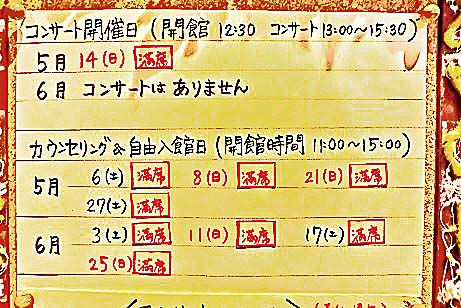 コンサート開催日 (開館 12:30 コンサート 13:00～15:30)
5月 14(日) 満席
6月 コンサートは ありません
カウンセリング&自由入館日 (開館時間 11:00～15:00)
5月 6(土) 満席 8(日) 満席 21(日) 満席
27(土) 満席
6月 3(土) 満席 11(日) 満席 17(土) 満席
25(日) 満席